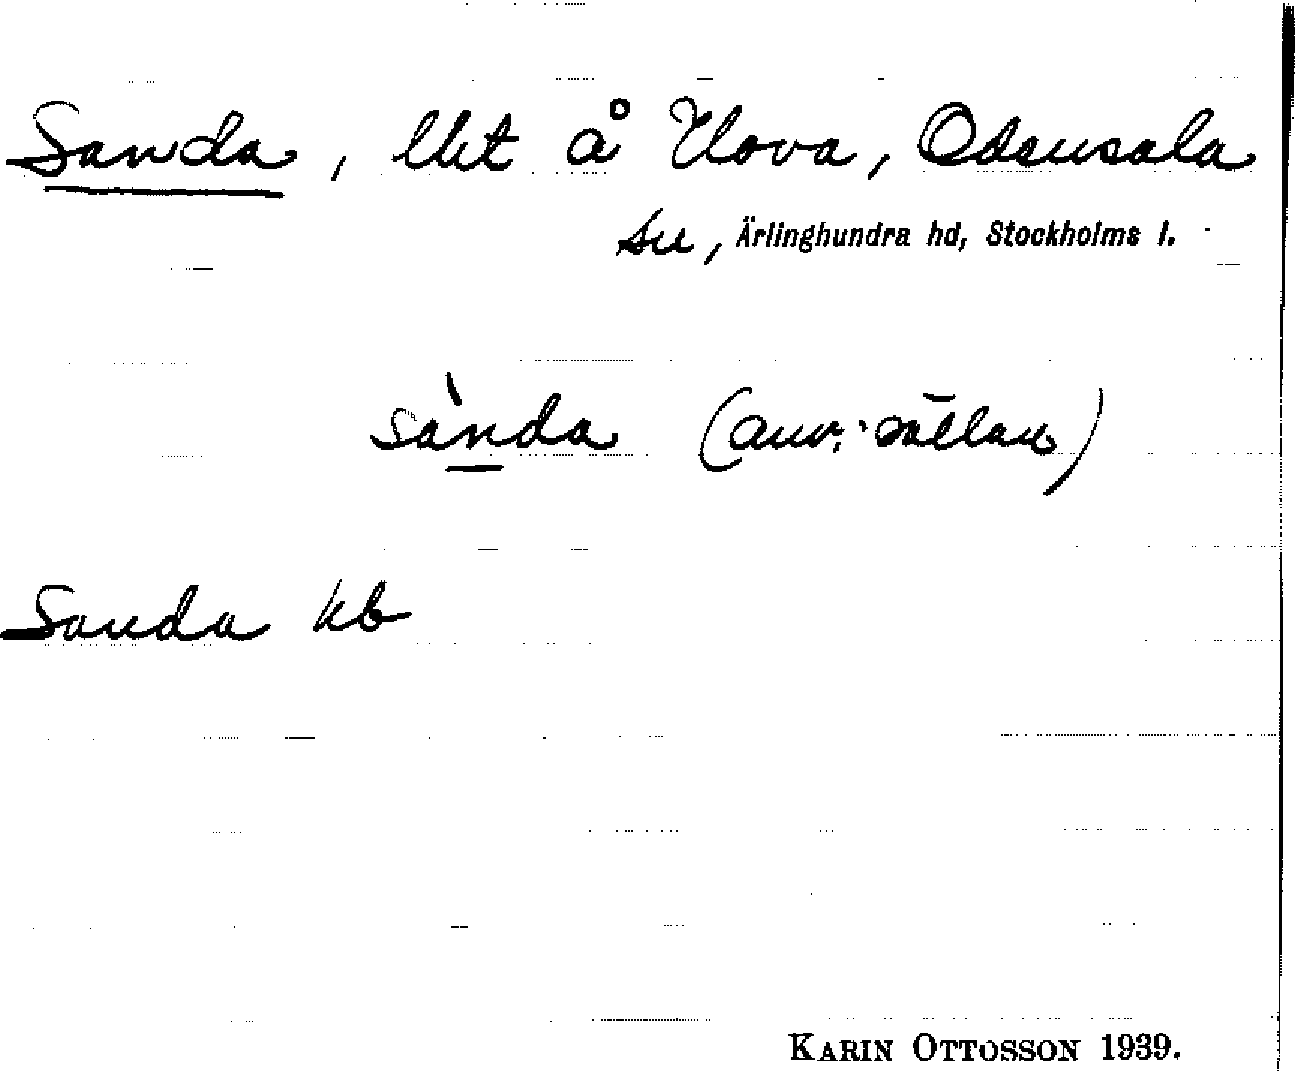 Sanda, lht å Hova, Odensala
sn, Ärlinghundra hd, Stockholms l.
sànda (anv. sällan)
Sanda kb
KARIN OTTOSSON 1939.